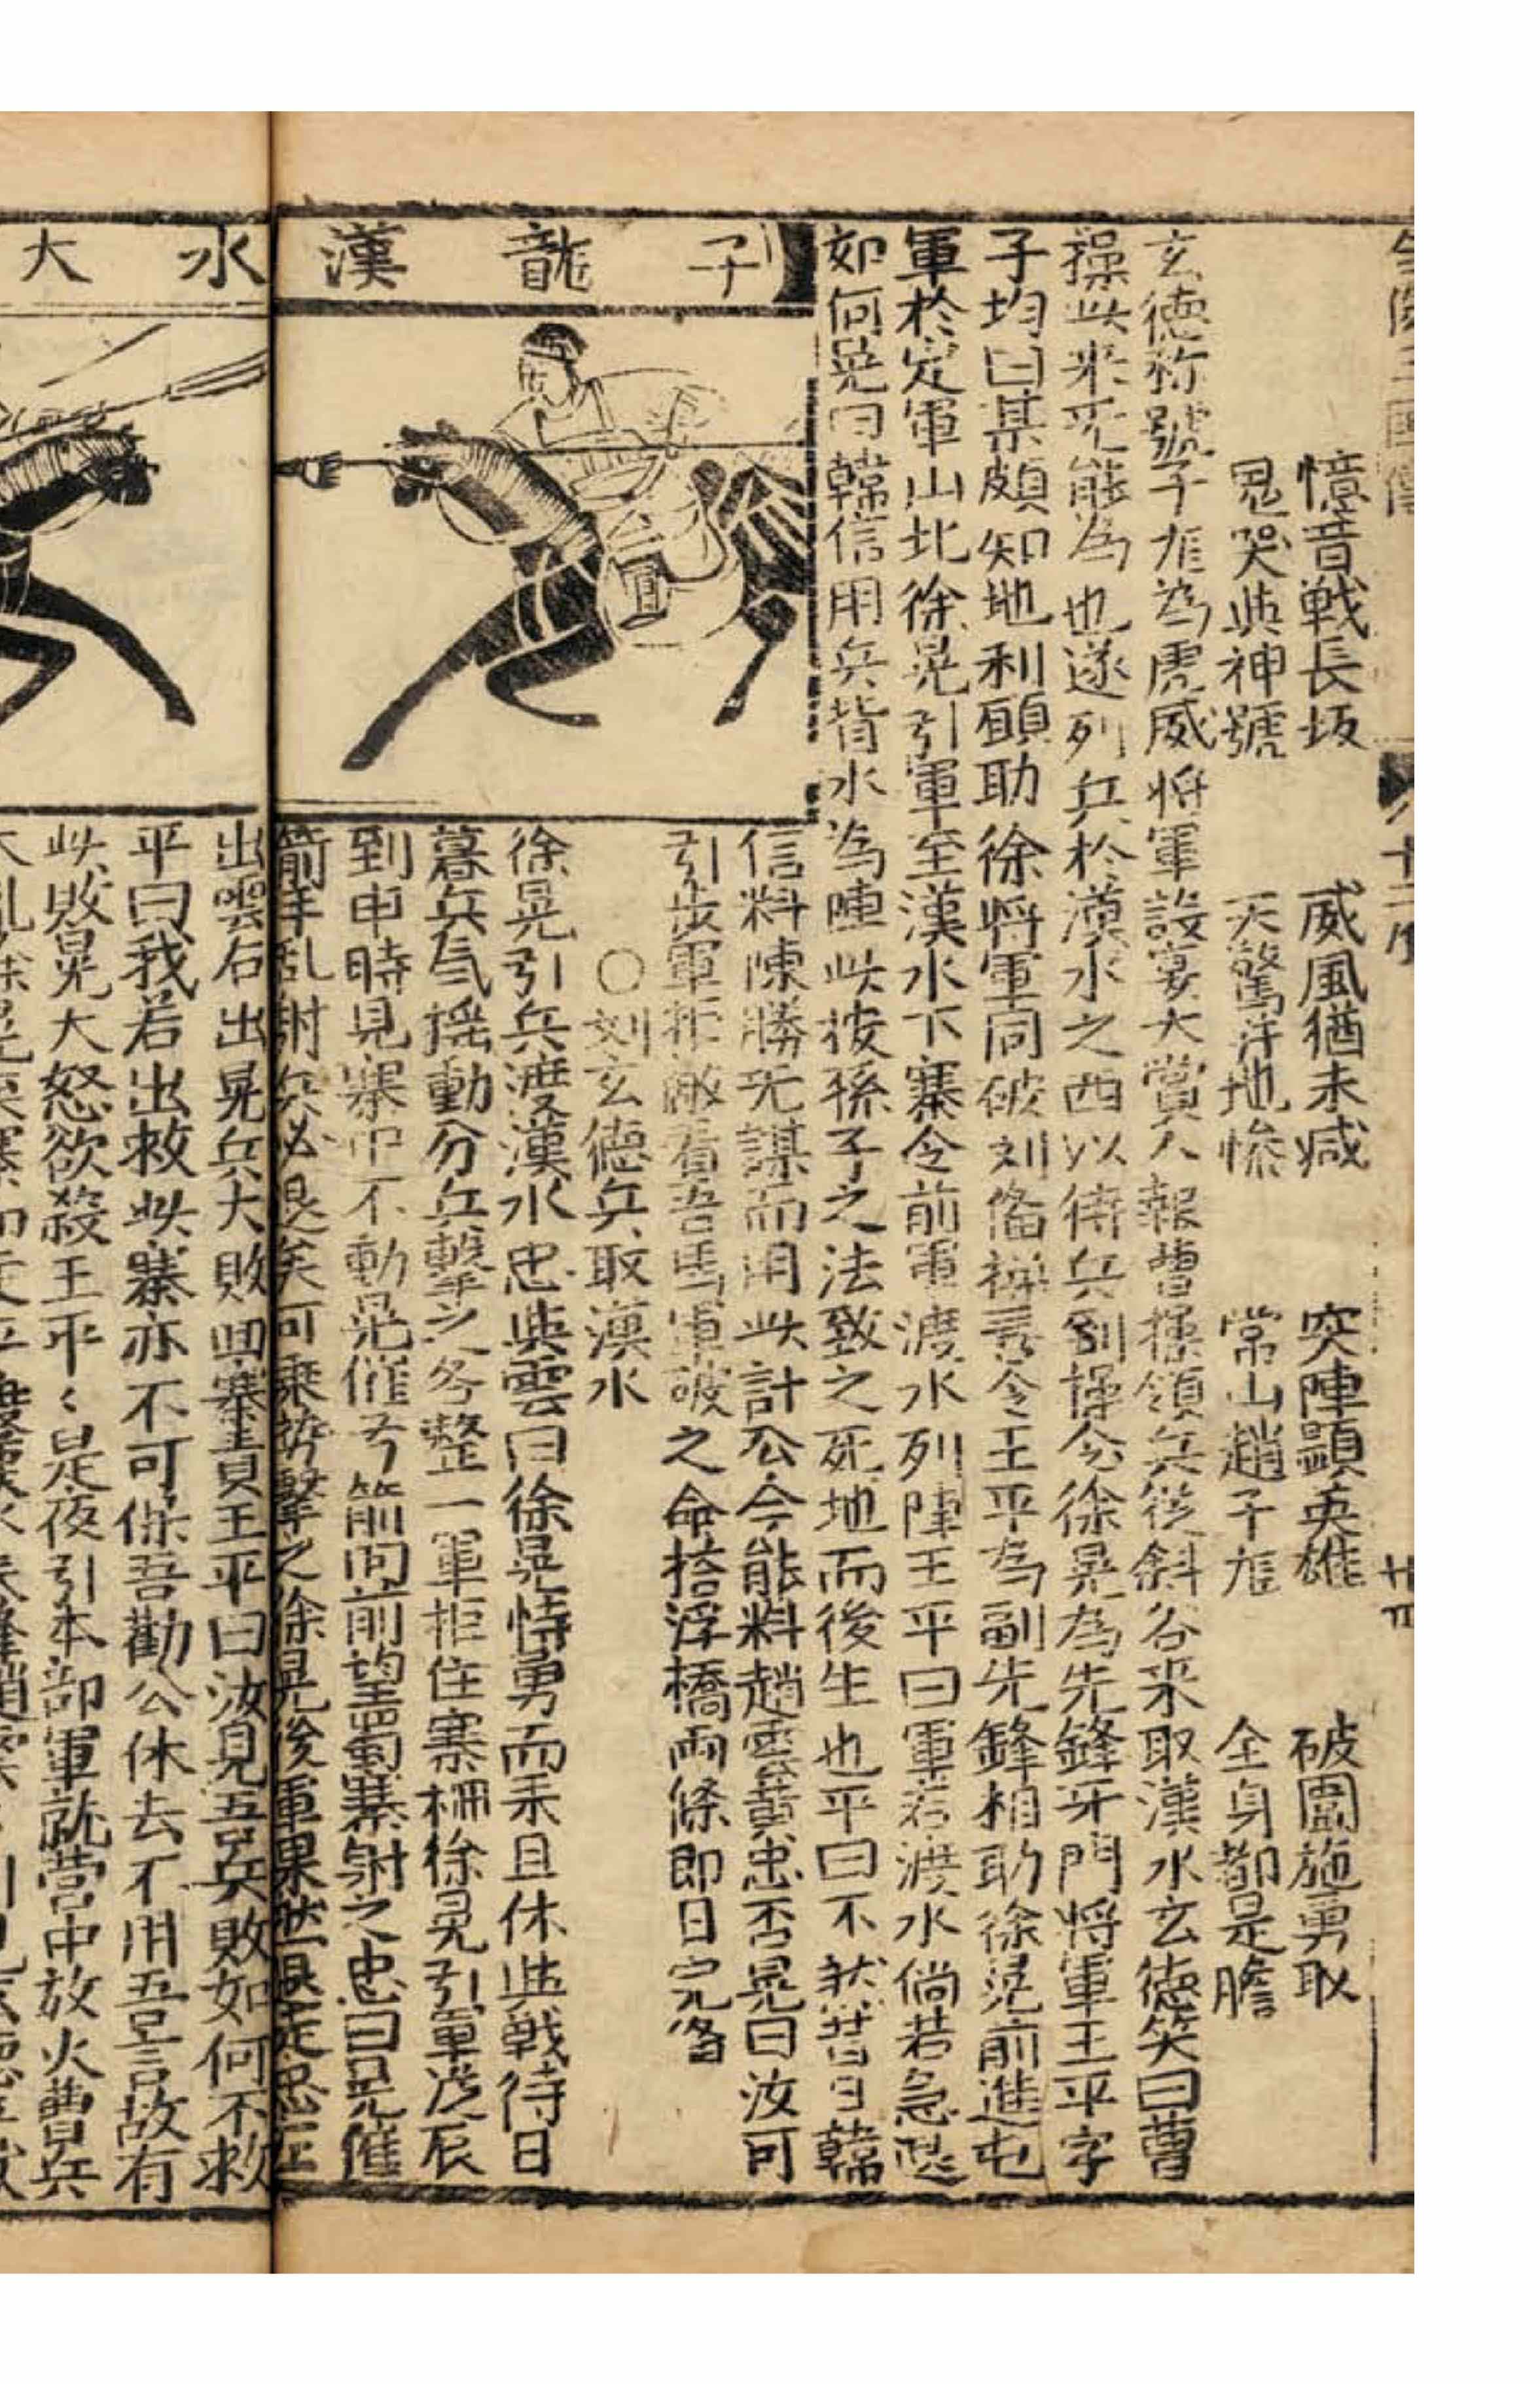 憶昔戰長坂 威風猶未减 突陣顯英雄 破圍施勇敢
鬼哭與神號 天驚并地慘 常山趙子龍 全身都是膽
玄德称號子龍為虎威將軍設宴大賞人報曹操領兵從斜谷來取漢水玄德笑曰曹
操此來无能為也遂列兵於漢水之西以待兵到操令徐晃為先鋒牙門將軍王平字
子均曰某頗知地利願助徐將軍同破刘俻操喜令王平為副先鋒相助徐晃前進屯
軍於定軍山北徐晃引軍至漢水下寨令前軍渡水列陣王平曰軍若渡水倘若急退
如何晃曰韓信用兵背水為陣此按孫子之法致之死地而後生也平曰不然昔日韓
信料陳勝无謀而用此計公今能料趙雲黃忠否晃曰汝可
引步軍拒敵看吾馬軍破之命搭浮橋兩條即日完俻
○刘玄德兵取漢水
徐晃引兵渡漢水忠與雲曰徐晃恃勇而来且休與戰待日
暮兵氣搖動分兵擊之各整一軍拒住寨柵徐晃引軍從辰
到申時見寨中不動晃催弓箭向前望蜀寨射之忠曰晃催
箭手乱射兵必退矣可乘势擊之徐晃後軍果然退走忠左
出雲右出晃兵大敗回寨責王平曰汝見吾兵敗如何不救
平曰我若出救此寨亦不可保吾勸公休去不用吾言故有
此敗晃大怒欲殺王平〻是夜引本部軍就营中放火曹兵
子龍漢
水大